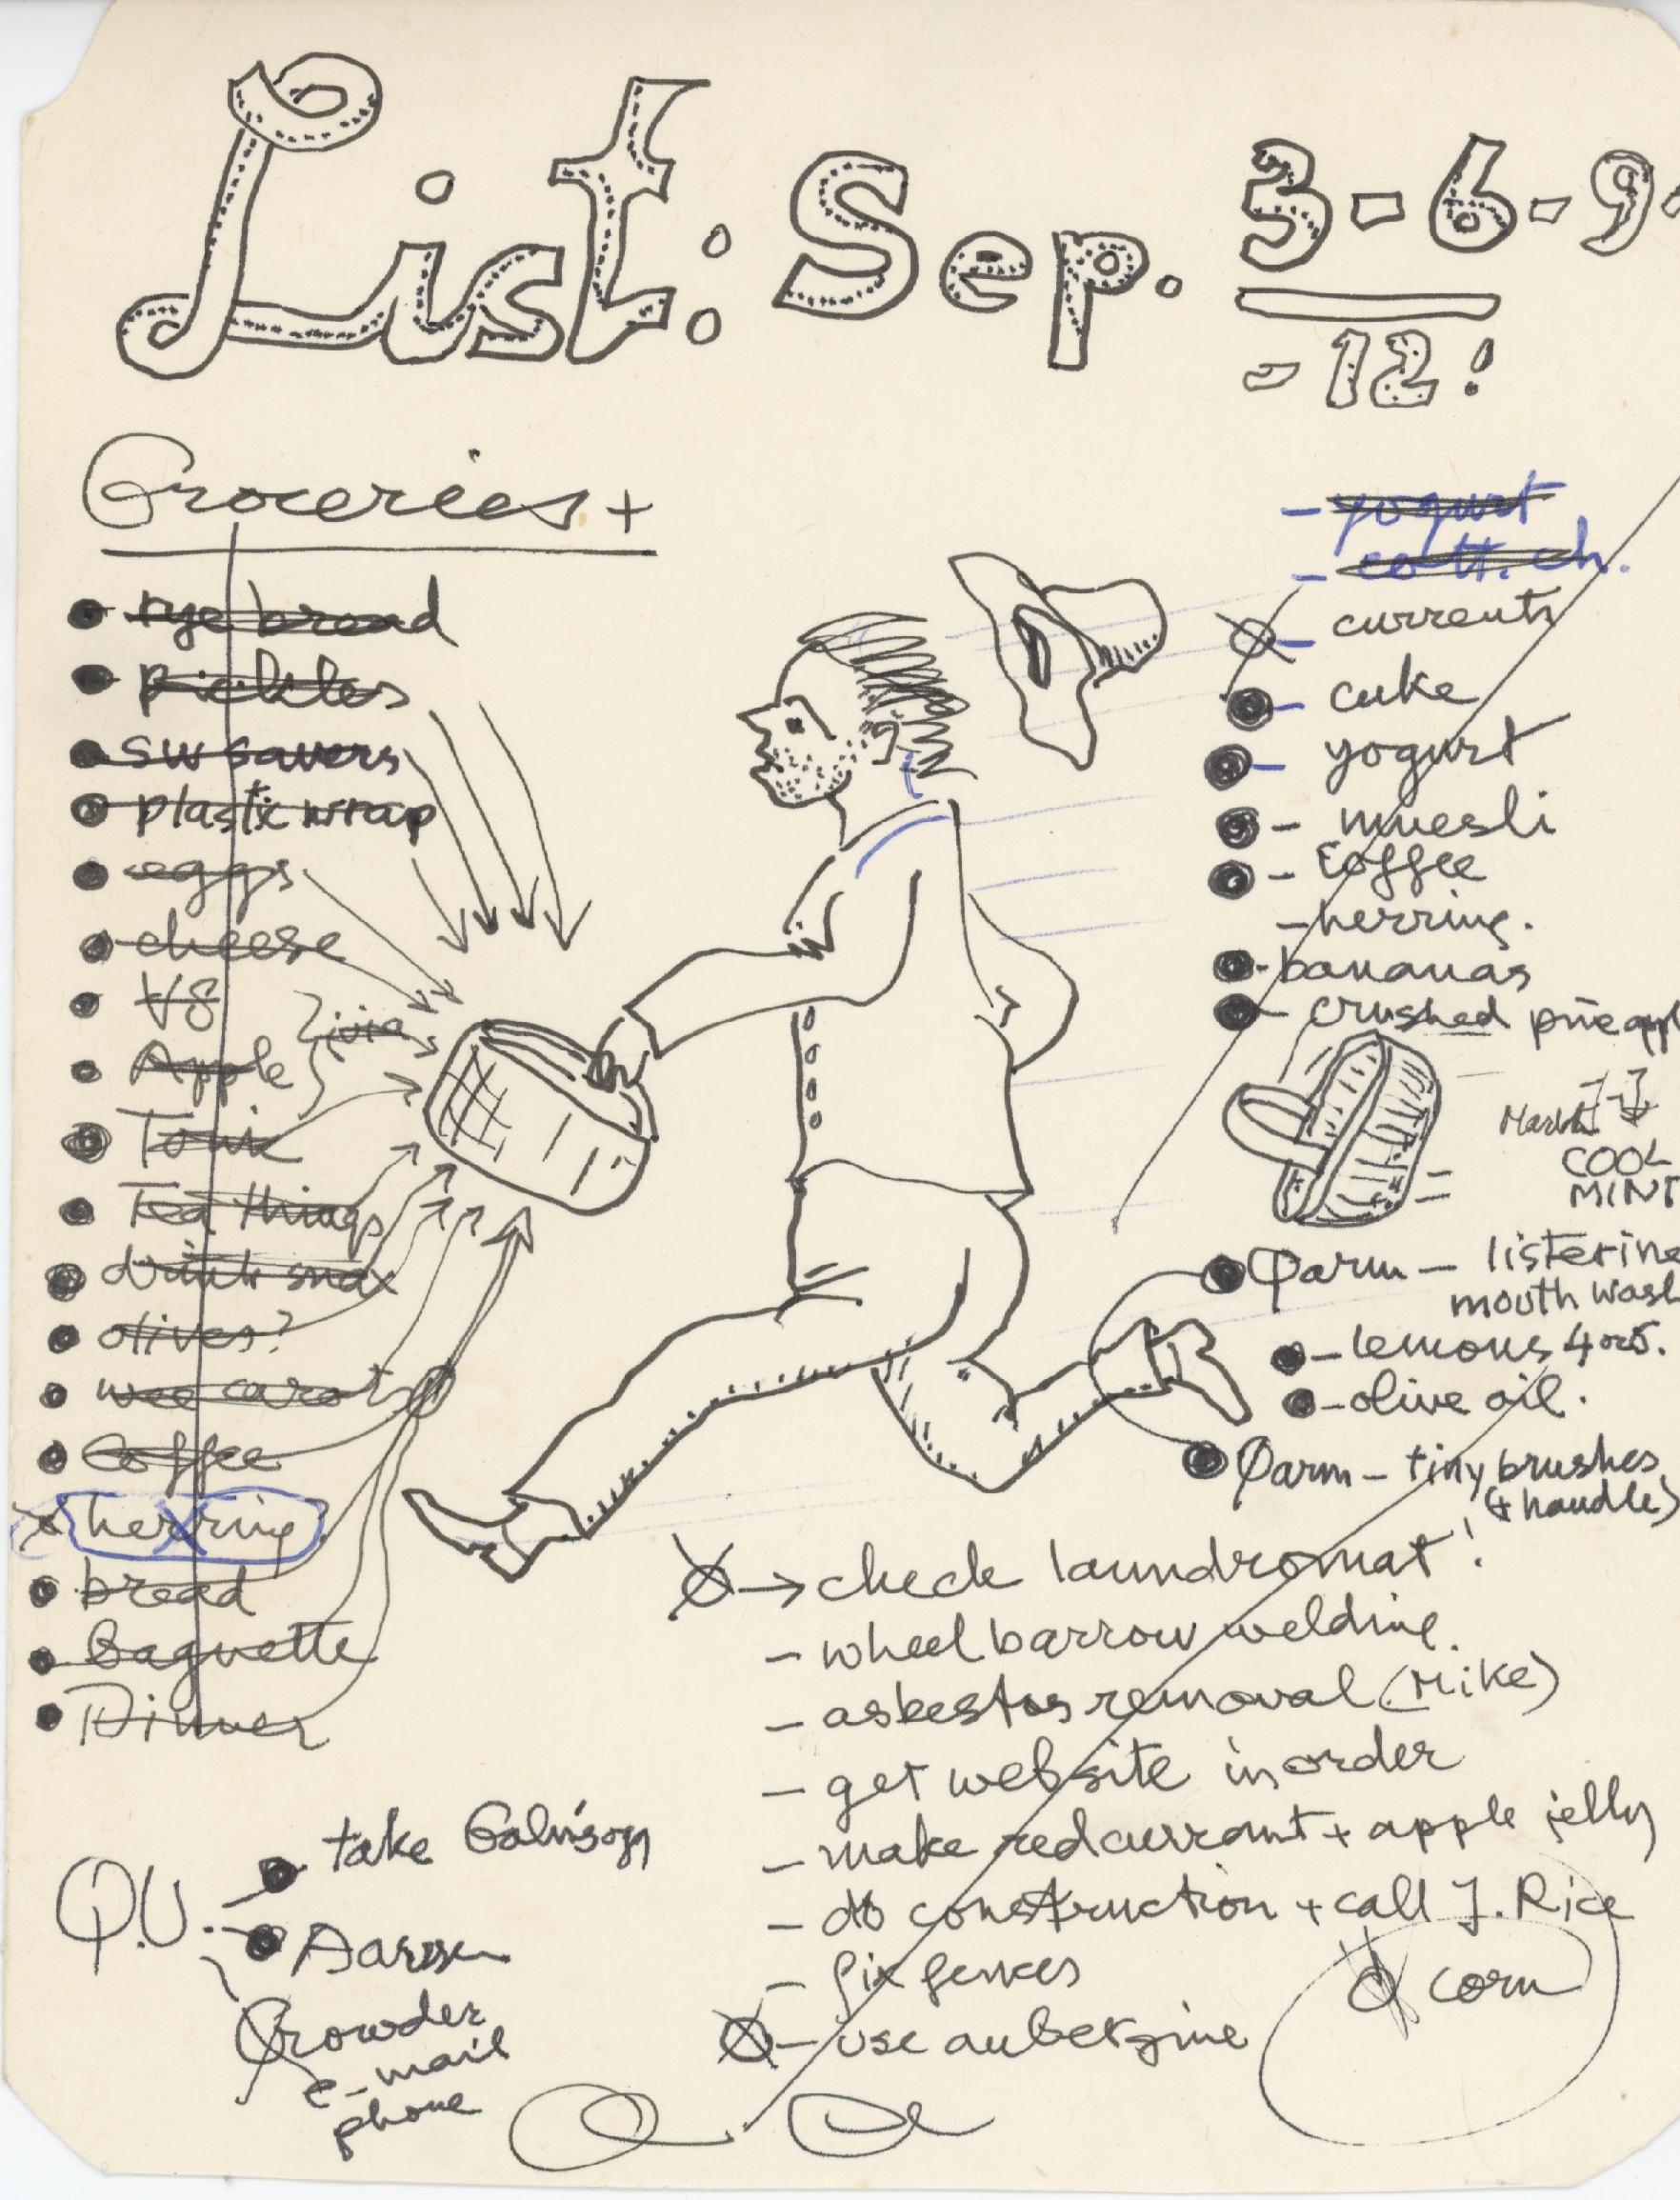 List: Sep. 3-6-9-
-12!
Groceries +
rye bread
pickles
sw savers
plastic wrap
eggs
cheese
V8
Apple
Tonic
Tea things
drink snax
olives?
wee carot
Coffee
herring
bread
baguette
Dinner
- yogurt
- cott. ch.
- currents
- cuke
- yogurt
- muesli
- Coffee
- herring.
- bananas
- crushed pineappl
COOL
MINT
Φarm - listerine
mouth wash
- lemons 4 or 5.
- olive oil.
Φarm - tiny brushes
(+ handle)
→ check laundromat!
- wheel barrow welding.
- asbestos removal (Mike)
- get website in order
- make red currant + apple jelly
- do construction + call J. Rice
- fix fences
- use aubergine
corn
Q.U. - take
Crowder
e-mail
phone